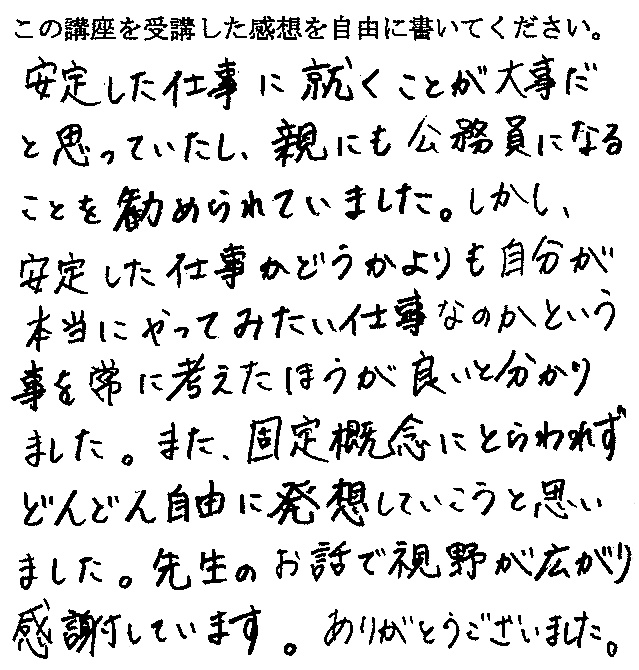 この講座を受講した感想を自由に書いてください。
安定した仕事に就くことが大事だ
と思っていたし、親にも公務員になる
ことを勧められていました。しかし、
安定した仕事かどうかよりも自分が
本当にやってみたい仕事なのかという
事を常に考えたほうが良いと分かり
ました。また、固定概念にとらわれず
どんどん自由に発想していこうと思い
ました。先生のお話で視野が広がり
感謝しています。ありがとうございました。